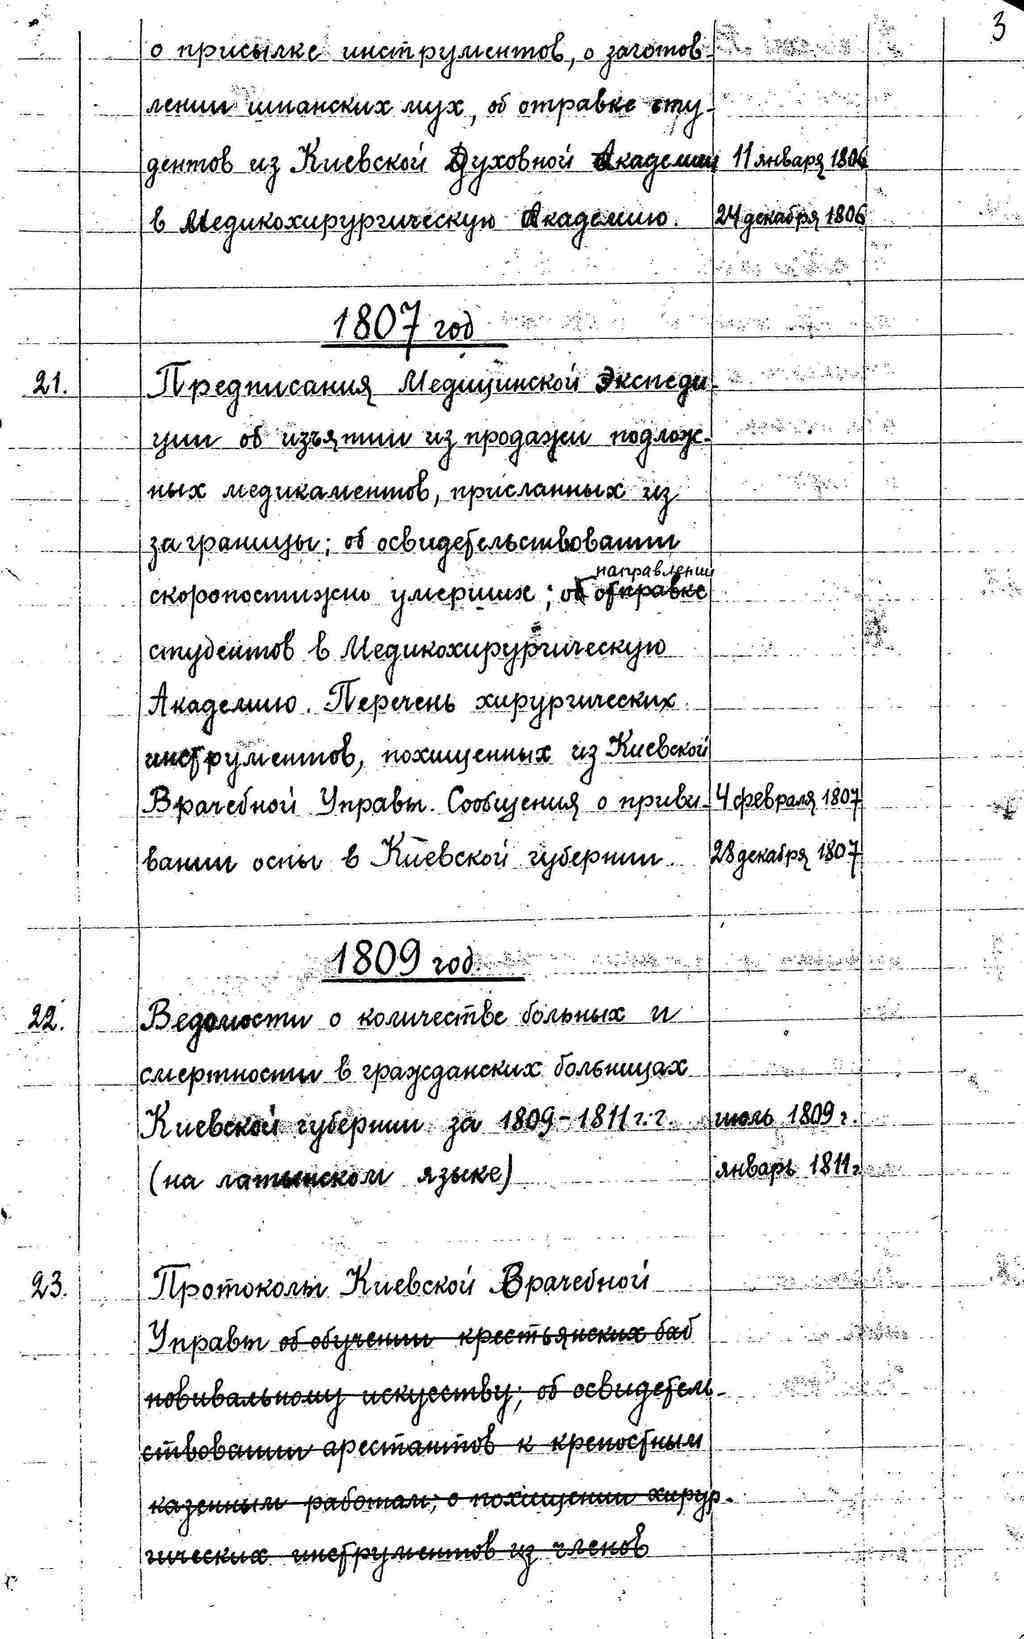 3
о присылке инструментов, о заготов-
лении шпанских мух, об отправке сту-
дентов из Киевской Духовной Академии 11 января 1806
в Медикохирургическую Академию. 24 декабря 1806
1807 год
21. Предписания Медицинской Экспеди-
ции об изъятии из продажи подлож-
ных медикаментов, присланных из
за границы; об освидетельствовании
направлении
скоропостижно умерших; об отправке
студентов в Медикохирургическую
Академию. Перечень хирургических
инструментов, похищенных из Киевской
Врачебной Управы. Сообщения о приви- 4 февраля 1807
вании оспы в Киевской губернии. 28 декабря 1807
1809 год
22. Ведомости о количестве больных и
смертности в гражданских больницах
Киевской губернии за 1809-1811 г.г. июль 1809 г.
(на латынском языке) январь 1811 г.
23. Протоколы Киевской Врачебной
Управы об обучении крестьянских баб
повивальному искусству; об освидетель-
ствовании арестантов к крепостным
казенным работам; о похищении хирур-
гических инструментов из членов